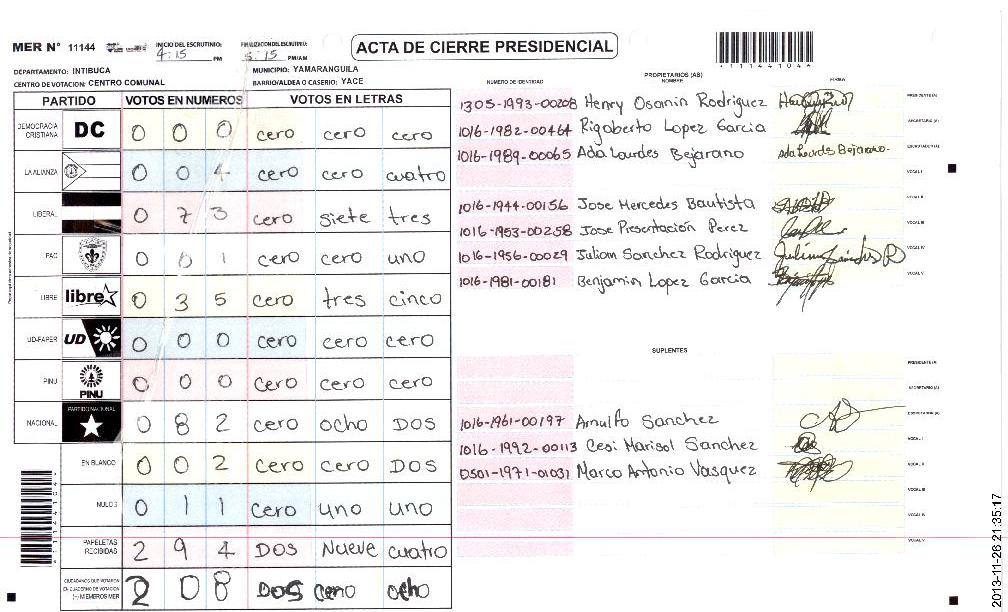 MER N° 11144
INICIO DEL ESCRUTINIO: 4:15 PM
FINALIZACION DEL ESCRUTINIO: 5:15 PM/AM
ACTA DE CIERRE PRESIDENCIAL
11144104
DEPARTAMENTO: INTIBUCA
MUNICIPIO: YAMARANGUILA
CENTRO DE VOTACION: CENTRO COMUNAL
BARRIO/ALDEA O CASERIO: YACE
PARTIDO VOTOS EN NUMEROS VOTOS EN LETRAS
DEMOCRACIA CRISTIANA DC 0 0 0 cero cero cero
LA ALIANZA 0 0 4 cero cero cuatro
LIBERAL 0 7 3 cero siete tres
PAC 0 0 1 cero cero uno
LIBRE libre 0 3 5 cero tres cinco
UD-FAPER UD 0 0 0 cero cero cero
PINU PINU 0 0 0 cero cero cero
NACIONAL PARTIDO NACIONAL 0 8 2 cero ocho DOS
EN BLANCO 0 0 2 cero cero DOS
NULOS 0 1 1 cero uno uno
PAPELETAS RECIBIDAS 2 9 4 DOS Nueve cuatro
CIUDADANOS QUE VOTARON EN CUADERNO DE VOTACION (+) MIEMBROS MER 2 0 8 DOS cero ocho
NUMERO DE IDENTIDAD
PROPIETARIOS (AS)
NOMBRE
FIRMA
1305-1993-00208 Henry Osanin Rodriguez PRESIDENTE (A)
1016-1982-00464 Rigoberto Lopez Garcia SECRETARIO (A)
1016-1989-00065 Ada Lourdes Bejarano Ada Lourdes Bejarano ESCRUTADOR (A)
VOCAL I
1016-1944-00156 Jose Mercedes Bautista VOCAL II
1016-1953-00258 Jose Presentación Perez VOCAL III
1016-1956-00029 Julian Sanchez Rodriguez Julian Sánchez R VOCAL IV
1016-1981-00181 Benjamin Lopez Garcia VOCAL V
SUPLENTES
PRESIDENTE (A)
SECRETARIO (A)
1016-1961-00197 Arnulfo Sanchez ESCRUTADOR (A)
1016-1992-00113 Cesi Marisol Sanchez VOCAL I
0501-1971-01031 Marco Antonio Vasquez VOCAL II
VOCAL III
VOCAL IV
VOCAL V
2013-11-26 21:35:17